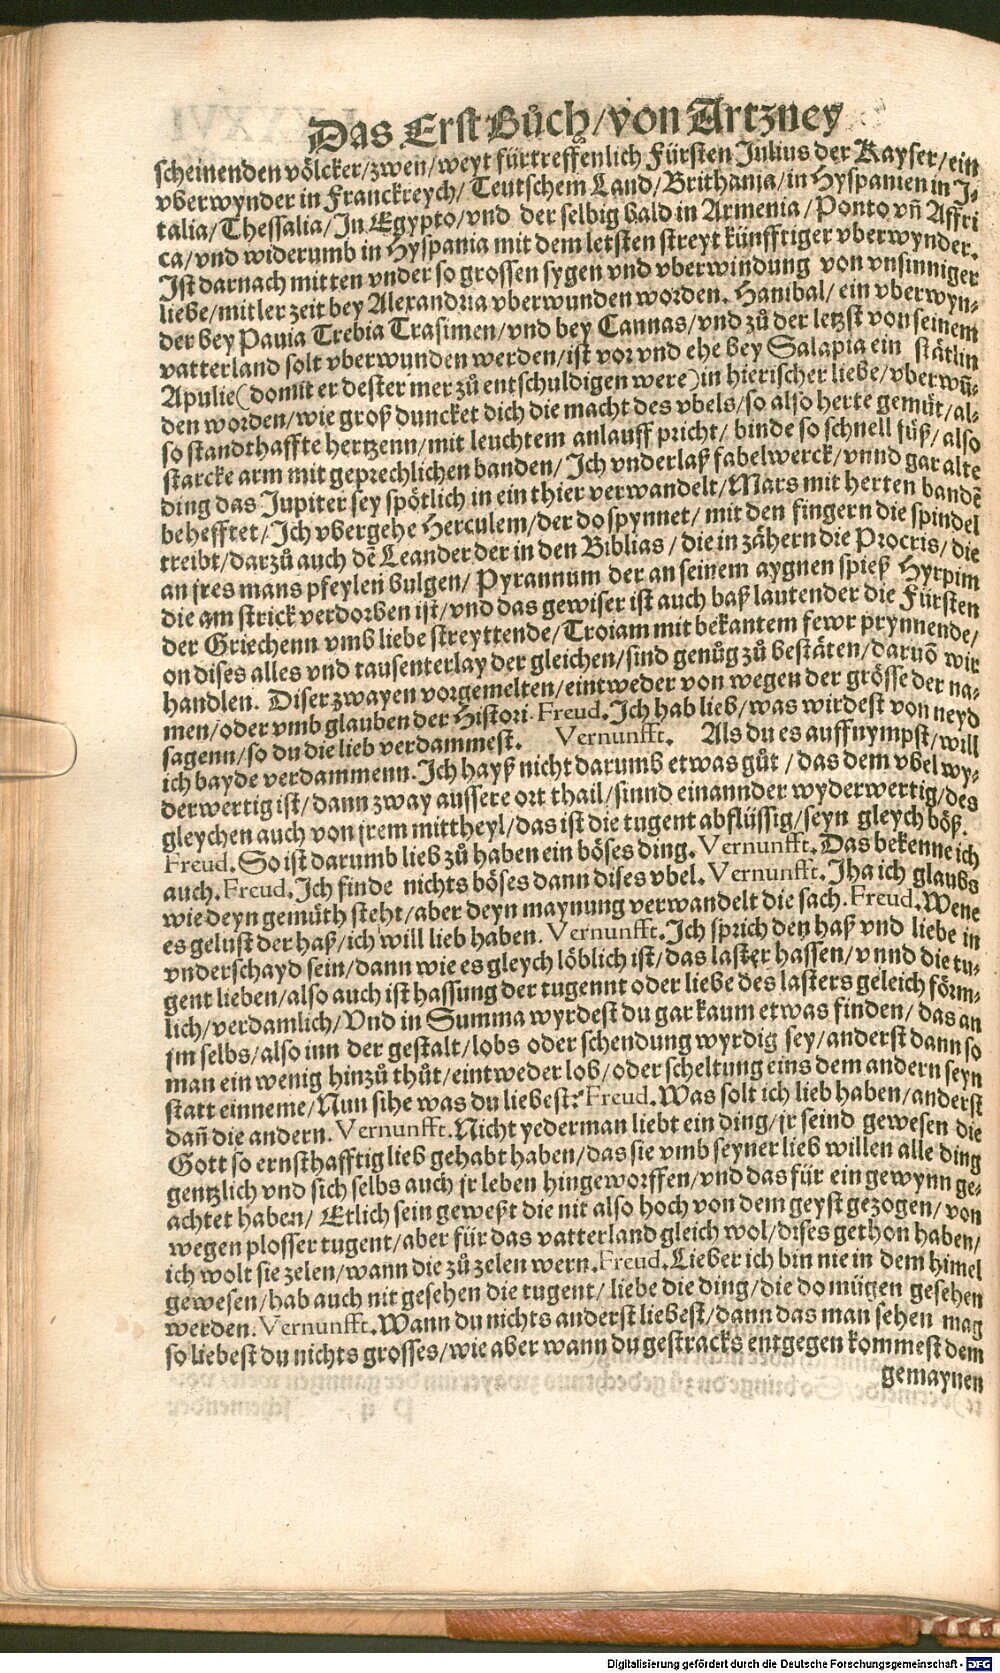 Das Erst Bůch/von Artzney
scheinenden völcker/zwen/weyt fürtreffenlich Fürsten Julius der Kayser/ein
vberwynder in Franckreych/Teutschem Land/Brithania/in Hyspanien in J-
talia/Thessalia/Jn Egypto/vnd der selbig bald in Armenia/Ponto vñ Affri
ca/vnd widerumb in Hyspania mit dem letsten streyt künfftiger vberwynder.
Jst darnach mitten vnder so grossen sygen vnd vberwindung von vnsinniger
liebe/mitler zeit bey Alexandria vberwunden worden. Hanibal/ein vberwyn-
der bey Pauia Trebia Trasimen/vnd bey Cannas/vnd zů der letzst von seinem
vatterland solt vberwunden werden/ist vor vnd ehe bey Salapia ein stätlin
Apulie(domit er dester mer zů entschuldigen were)in hierischer liebe/vberwū-
den worden/wie groß duncket dich die macht des vbels/so also herte gemüt/al-
so standthaffte hertzenn/mit leuchtem anlauff pricht/binde so schnell füß/also
starcke arm mit geprechlichen banden/Jch vnderlaß fabelwerck/vnnd gar alte
ding das Jupiter sey spötlich in ein thier verwandelt/Mars mit herten bandē
behefftet/Jch vbergehe Herculem/der do spynnet/mit den fingern die spindel
treibt/darzů auch dē Leander der in den Biblias/die in zähern die Procris/die
an jres mans pfeylen bulgen/Pyrannum der an seinem aygnen spieß Hyrpim
die am strick verdorben ist/vnd das gewiser ist auch baß lautender die Fürsten
der Griechenn vmb liebe streyttende/Troiam mit bekantem fewr prynnende/
on dises alles vnd tausenterlay der gleichen/sind genůg zů bestäten/daruō wir
handlen. Diser zwayen vorgemelten/eintweder von wegen der grösse der na-
men/oder vmb glauben der Histori. Freud. Jch hab lieb/was wirdest von neyd
sagenn/so du die lieb verdammest. Vernunfft. Als du es auffnympst/will
ich bayde verdammenn. Jch hayß nicht darumb etwas gůt/das dem vbel wy-
derwertig ist/dann zway aussere ort thail/sinnd einannder wyderwertig/des
gleychen auch von jrem mittheyl/das ist die tugent abflüssig/seyn gleych böß.
Freud. So ist darumb lieb zů haben ein böses ding. Vernunfft. Das bekenne ich
auch. Freud. Jch finde nichts böses dann dises vbel. Vernunfft. Jha ich glaubs
wie deyn gemüth steht/aber deyn maynung verwandelt die sach. Freud. Wene
es gelust der haß/ich will lieb haben. Vernunfft. Jch sprich den haß vnd liebe in
vnderschayd sein/dann wie es gleych löblich ist/das laster hassen/vnnd die tu-
gent lieben/also auch ist hassung der tugennt oder liebe des lasters geleich förm-
lich/verdamlich/Vnd in Summa wyrdest du gar kaum etwas finden/das an
jm selbs/also inn der gestalt/lobs oder schendung wyrdig sey/anderst dann so
man ein wenig hinzů thůt/eintweder lob/oder scheltung eins dem andern seyn
statt einneme/Nun sihe was du liebest? Freud. Was solt ich lieb haben/anderst
dañ die andern. Vernunfft. Nicht yederman liebt ein ding/jr seind gewesen die
Gott so ernsthafftig lieb gehabt haben/das sie vmb seyner lieb willen alle ding
gentzlich vnd sich selbs auch jr leben hingeworffen/vnd das für ein gewynn ge-
achtet haben/Etlich sein geweßt die nit also hoch von dem geyst gezogen/von
wegen plosser tugent/aber für das vatterland gleich wol/dises gethon haben/
ich wolt sie zelen/wann die zů zelen wern. Freud. Lieber ich bin nie in dem himel
gewesen/hab auch nit gesehen die tugent/liebe die ding/die do mügen gesehen
werden. Vernunfft. Wann du nichts anderst liebest/dann das man sehen mag
so liebest du nichts grosses/wie aber wann du gestracks entgegen kommest dem
gemaynen
Digitalisierung gefördert durch die Deutsche Forschungsgemeinschaft - DFG